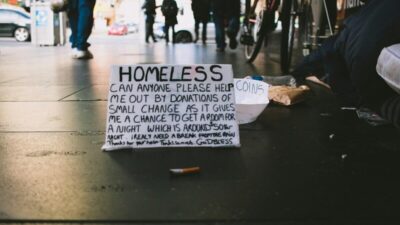 HOMELESS
CAN ANYONE PLEASE HELP
ME OUT BY DONATIONS OF
SMALL CHANGE AS IT GIVES
ME A CHANCE TO GET A ROOM FOR
A NIGHT WHICH IS AROUND
NIGHT I REALY NEED A BREAK FROM THE RAIN
Thanks for your GODBLESS
COINS